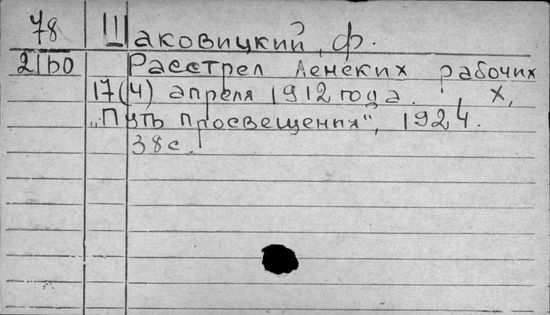 78 Шаковицкий, Ф.
2160 Расстрел Ленских рабочих
17(4) апреля 1912 года. , Х,
„Путь просвещения", 1924.
38с.